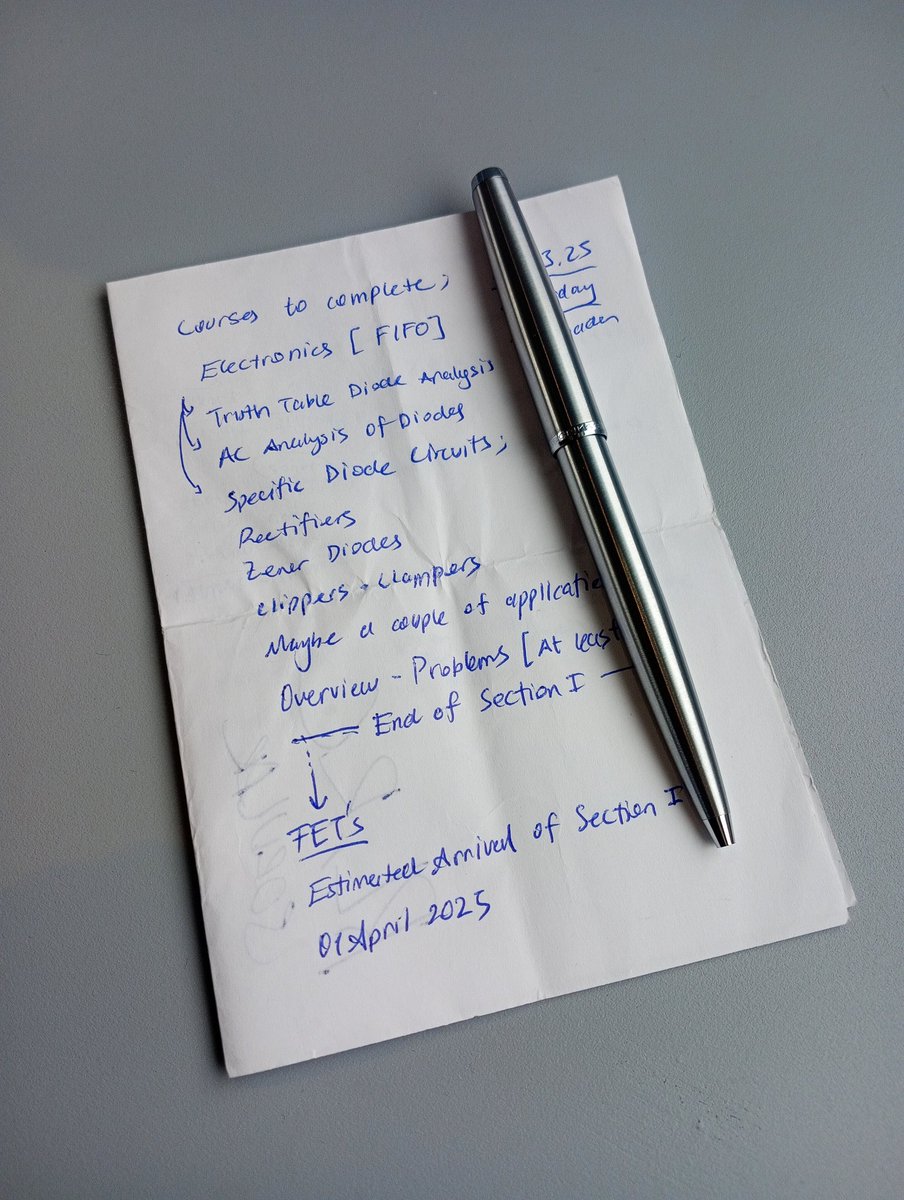 3.25
day
Courses to complete;
Electronics [FIFO]
Truth Table Diode Analysis
AC Analysis of Diodes
Specific Diode Circuits;
Rectifiers
Zener Diodes
Clippers - Clampers
Maybe a couple of applicatio
Overview - Problems [At least
End of Section I
FET's
Estimated Arrival of Section I
01 April 2025